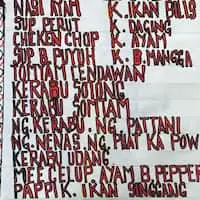 NASI AYAM K. IKAN BILIS
SUP PERUT K. DAGING
CHEKEN CHOP K. AYAM
SUP B. PUYOH K. B. MANGGA
TOMYAM CENDAWAN
KERABU SOTONG
KERABU SOMTAM
NG. KERABU. NG. PATTANI
NG. NENAS NG. PHAT KA POW
KERABU UDANG
MEE CELUP AYAM B. PEPPER
PAPPIK. IKAN SINGGANG